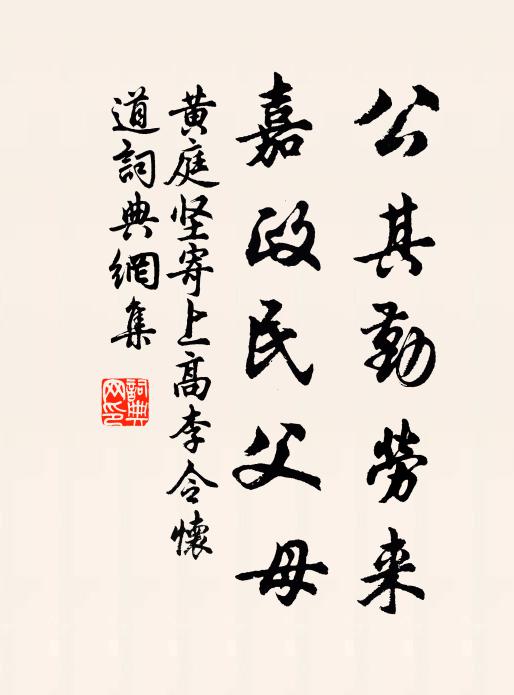 公其勤劳来
嘉政民父母
黄庭坚寄上高李令懷
道詞典網集
詞典
网印